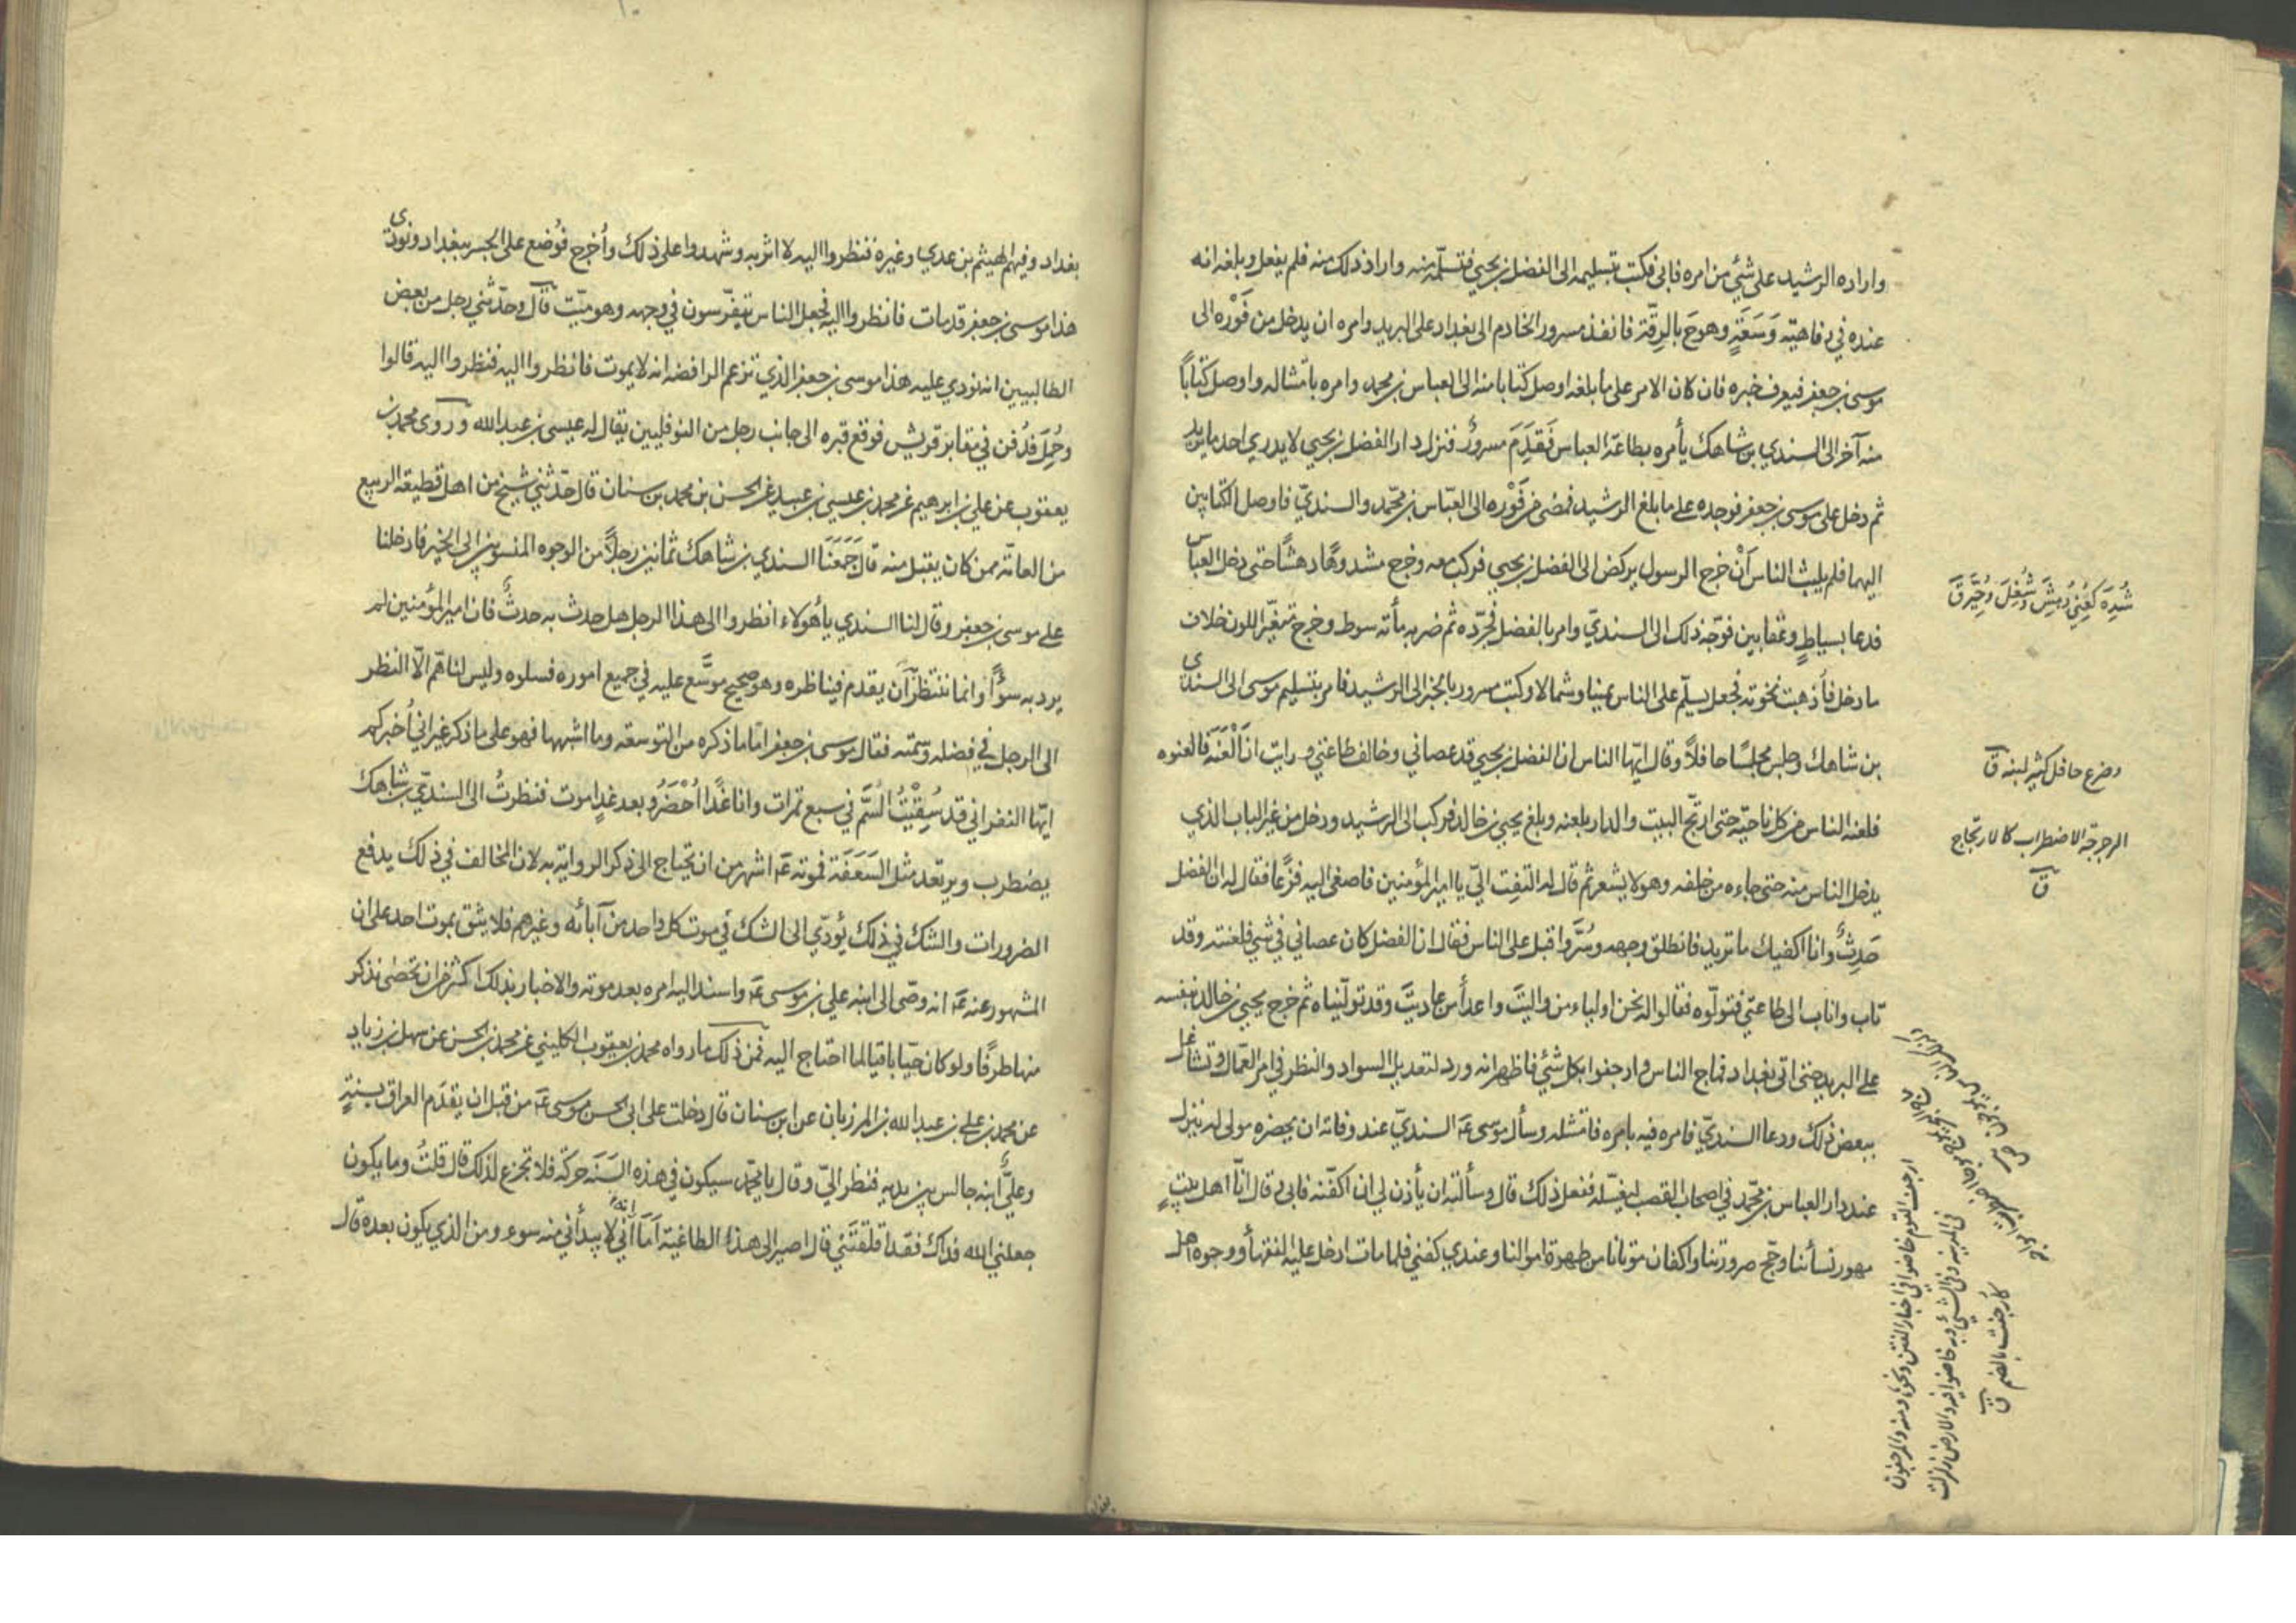 واراده الرشيد على شئ من امره فابى فكتب بتسليمه الى الفضل بن يحيى فتسلّمه منه واراد ذلك منه فلم يفعل وبلغه انه
عنده في رفاهيّة وَسَعَةٍ وهوحَ بالرقّة فانفذ مسرور الخادم الى بغداد على البريد وامره ان يدخل من فَوْره الى
موسى بن جعفر فيعرف خبره فان كان الامر على ما بلغه اوصل كتابا منه الى العباس بن محمد وامره بامتثاله واوصل كتاباً
منه آخر الى السندي بن شاهك يأمره بطاعة العباس فَقَدِمَ مسرورٌ فنزل دار الفضل بن يحيى لا يدري احد ما يريد
ثم دخل على موسى بن جعفر فوجده على ما بلغ الرشيد فمضى من فَوْره الى العبّاس بن محمّد والسنديّ فاوصل الكتابين
اليهما فلم يلبث الناس اَنْ خرج الرسول يركض الى الفضل بن يحيى فركب معه وخرج مشدوهًا دهشًا حتى دخل العباس
فدعا بسياطٍ وعقابين فوجّه ذلك الى السنديّ وامر بالفضل فجرّده ثم ضربه مأته سوط وخرج متغيّر اللون خلاف
ما دخل فأذهبت نخوته فجعل يسلّم على الناس يمينا وشمالا وكتب مسرور بالخبر الى الرشيد فامر بتسليم موسى الى السندى
بن شاهك وجلس مجلسًا حافلاً وقال ايّها الناس ان الفضل بن يحيى قد عصاني وخالف طاعتي ورايت ان اَلْعَنَهُ فالعنوه
فلعنه الناس من كل ناحيّة حتى ارتجّ البيت والدار بلعنه وبلغ يحيى بن خالد فركب الى الرشيد ودخل من غير الباب الذي
يدخل الناس منه حتى جاءه من خلفه وهو لا يشعر ثم قال له التفِت اليّ يا امير المؤمنين فاصغى اليه فزعًا فقال له ان الفضل
حَدِثٌ وانا اكفيك ما تريد فانطلق وجهه وسُرَّ واقبل على الناس فقال ان الفضل كان عصاني في شئ فلعنته وقد
تاب واناب الى طاعتي فتولّوه فقالوا له نحن اولياء من واليتَ واعدأ من عاديتَ وقد تولّيناه ثم خرج يحيى بن خالد بنفسه
على البريد حتى اتى بغداد فماج الناس وارجفوا بكل شئ فاظهر انه ورد لتعديل السواد والنظر في امر العمّال وتشاغل
ببعض ذلك ودعا السنديّ فامره فيه بامره فامتثله وسأل موسى عَ السنديّ عند وفاته ان يحضره مولى له ينزل
عند دار العباس بن محمّد في اصحاب القصب ليغسّله ففعل ذلك قال وسألته ان يأذن لي ان اكفّنه فابى قال انّا اهل بيتٍ
مهور نسأئنا وحج صرورتنا واكفان موتانا من طهرة اموالنا وعندي كفني فلما مات ادخل عليه الفقهأ ووجوه اهل
شُدِهَ كعُنِيَ دُهِشَ وشُغِلَ وحُيِّرَ قَ
وضرع حافل كثير لبنه قَ
الرجرجة الاضطراب كالارتجاج
قَ
ارجف القوم خاضوا في اخبار الفتن ونحوها ومنه والمرجفون
في المدينة وفي الشئ وبه خاضوا فيه والارض زلزلت
كأرجفت بالضم قَ
بغداد
بغداد وفيهم الهيثم بن عدي وغيره فنظروا اليه لا اثر به وشهدوا على ذلك وأُخرج فوُضع على الجسر ببغداد ونودى
هذا موسى بن جعفر قد مات فانظروا اليه فجعل الناس يتفرّسون في وجهه وهو ميّت قال وحدّثني رجل من بعض
الطالبيين انه نودي عليه هذا موسى بن جعفر الذي تزعم الرافضه انه لا يموت فانظروا اليه فنظروا اليه قالوا
وحُمِلَ فدُفن في مقابر قريش فوقع قبره الى جانب رجل من النوفليين يقال له عيسى بن عبد الله وروى محمد بن
يعقوب عن علي بن ابرهيم عن محمد بن عيسى بن عبيد عن الحسن بن محمد بن سنان قال حدّثني شيخ من اهل قطيعة الربيع
من العامّة ممن كان يقبل منه قال جَمَعَنَا السندي بن شاهك ثمانين رجلاً من الوجوه المنسوبين الى الخير فادخلنا
على موسى بن جعفر وقال لنا السندي يا هُولاء انظروا الى هذا الرجل هل حدث به حدثٌ فان امير المؤمنين لم
يرد به سوًأ وانما ننتظر أن يقدم فيناظره وهو صحيح موسَّع عليه في جميع اموره فسلوه وليس لنا همّ الّا النظر
الى الرجل في فضله وسمته فقال موسى بن جعفر امّا ما ذكره من التوسعة وما اشبهها فهو على ما ذكر غير اني أخبركم
ايّها النفر اني قد سُقِيْتُ السَّم في سبع تمرات وانا غدًا اُخْضَرُ وبعد غدٍ اموت فنظرتُ الى السنديّ بن شاهك
يضطرب ويرتعد مثل السَعَفَة فموته عَ اشهر من ان يحتاج الى ذكر الرواية به لان المخالف في ذلك يدفع
الضرورات والشك في ذلك يؤدّي الى الشك في موت كل واحد من آبائه وغيرهم فلا يثق بموت احد على ان
المشهور عنه عَ انه وصّى الى ابنه علي بن موسى عَ واسند اليه امره بعد موته والاخبار بذلك اكثر من ان تحصى نذكر
منها طرفًا ولو كان حيّا باقيا لما احتاج اليه فمن ذلك ما رواه محمد بن يعقوب الكليني عن محمد بن الحسن عن سهل بن زياد
عن محمد بن علي بن عبد الله بن المرزبان عن ابن سنان قال دخلت على ابي الحسن موسى عَ من قبل ان يقدَم العراق بسنةٍ
وعليٌّ ابنه جالس بين يديه فنظر اليّ وقال يا محمّد سيكون في هذه السَنَة حركة فلا تجزع لذلك قال قلتُ وما يكون
جعلني الله فداك فقد اقلقتَني قال اصير الى هذه الطاغية اَمَا اني لا يبدأني منه سوء ومن الذي يكون بعده قال